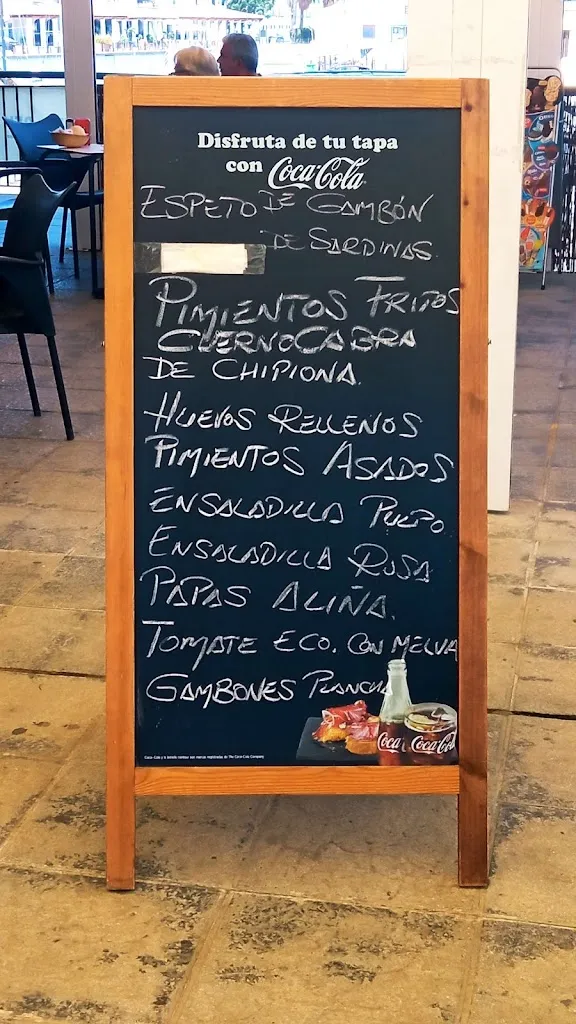 Disfruta de tu tapa
con Coca-Cola
ESPETO DE GAMBÓN
DE SARDINAS.
PIMIENTOS FRITOS
CUERNOCABRA
DE CHIPIONA.
HUEVOS RELLENOS
PIMIENTOS ASADOS
ENSALADILLA PULPO
ENSALADILLA RUSA
PAPAS ALIÑÁ.
TOMATE ECO. CON MELVA
GAMBONES PLANCHA
Coca-Cola
Coca-Cola y la botella contour son marcas registradas de The Coca-Cola Company